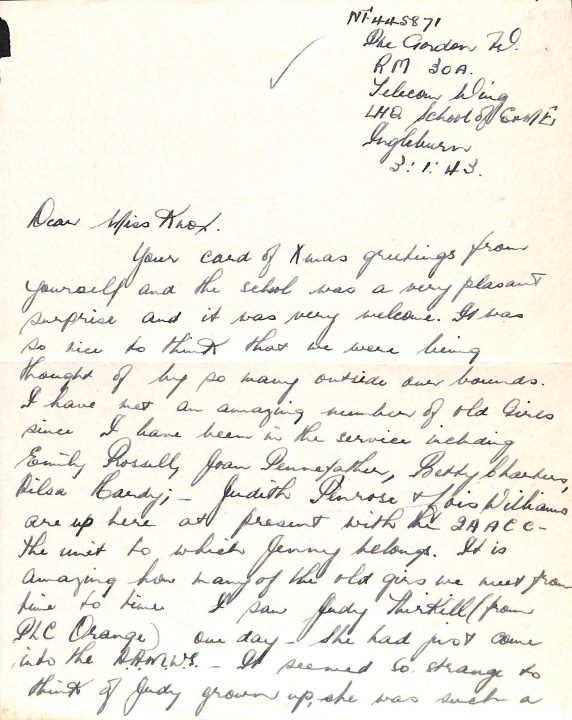 NF445871
Pte Gordon W.
RM 30A.
Telecom Wing
LHQ School of E&ME,
Ingleburn
3:1:43.
Dear Miss Knox.
Your card of Xmas greetings from
yourself and the school was a very pleasant
surprise and it was very welcome. It was
so nice to think that we were being
thought of by so many outside our bounds.
I have met an amazing number of old Girls
since I have been in the service including
Emily Rossell, Joan Pennefather, Betty Charters,
Hardy; - Judith Penrose & Lois Williams
are up here at present with the 2AACC -
the unit to which Jenny belongs. It is
amazing how many of the old girs we meet from
time to time I saw Judy Thirkill (from
PLC Orange) one day - She had just come
into the A.A.M.W.S. - It seemed so strange to
think of Judy grown up, she was such a